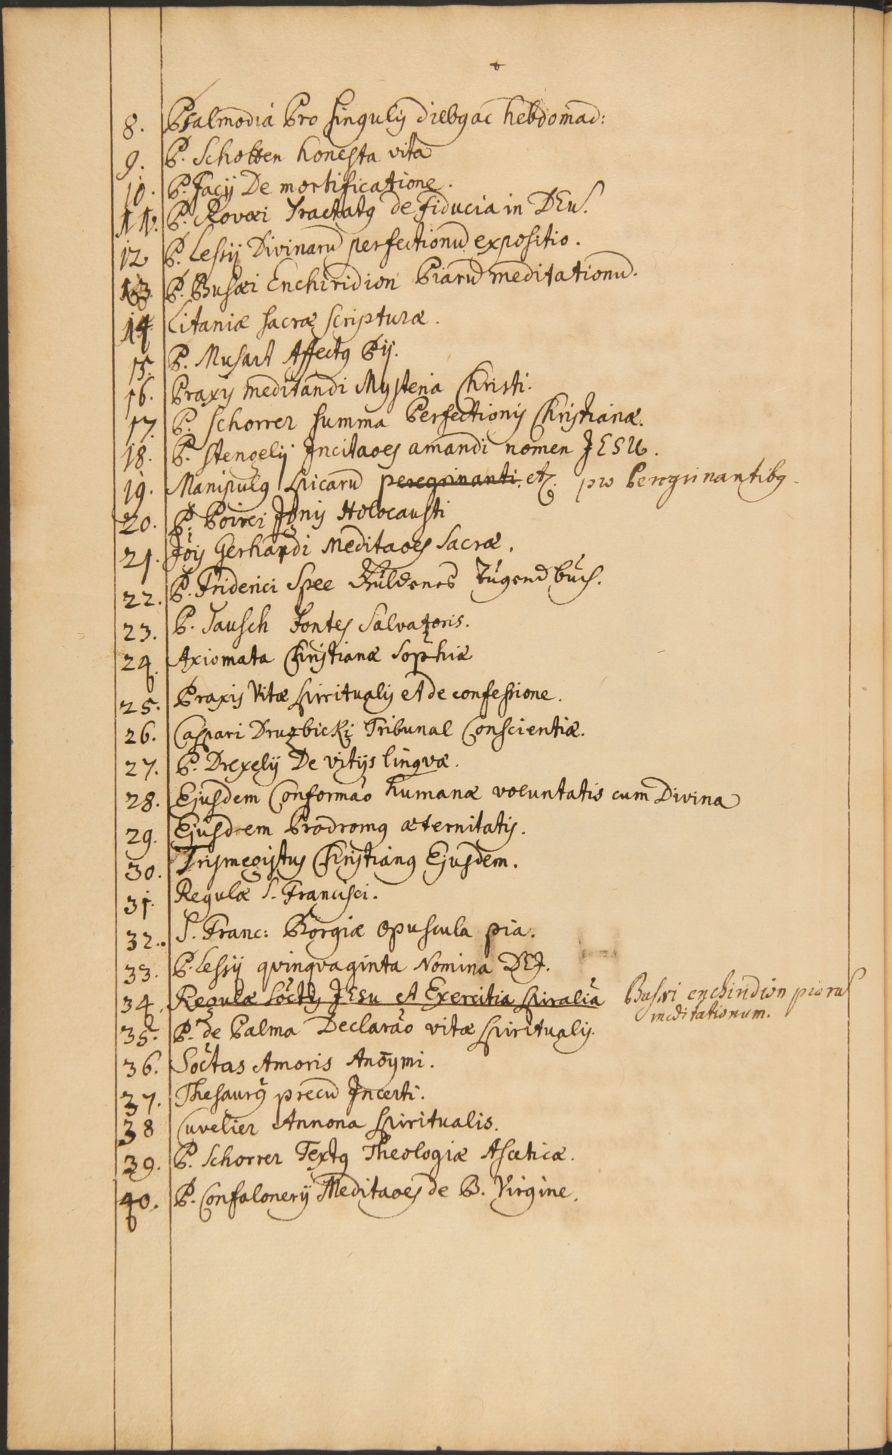 8. Psalmodia Pro singulis diebꝰ ac hebdomad:
9. P. Schotten honesta vita
10. P. Facij De mortificatione.
11. P. Rovæi Tractatꝰ de fiducia in DEũ.
12 P. Lessij Divinarũ perfectionũ expositio.
13 P. Busæi Enchiridion Piarũ meditationũ.
14 Litaniæ sacræ scripturæ.
15. P. Musart Affectꝰ Pij.
16. Praxis meditandi Mysteria Christi.
17. P. Schorrer summa Perfectionis Christianæ.
18. P. Stengelij Incitaões amandi nomen JESU.
19. Manipulꝰ spicarũ peregrinanti. etc. pro Peregrinantibꝰ.
20. P. Poirei Ignis Holocausti
21. Jõis Gerhardi Meditaões Sacræ.
22. P. Friderici Spee Güldenes Tugendbuch.
23. P. Tausch Fontes Salvatoris.
24. Axiomata Christianæ Sophiæ
25. Praxis Vitæ spiritualis et de confessione.
26. Caspari Druzbicki Tribunal Conscientiæ.
27. P. Drexelij De vitijs lingvæ.
28. Ejusdem Conformaõ humanæ voluntatis cum Divina
29. Ejusdem Prodromꝰ æternitatis.
30. Trismegistus Christianꝰ Ejusdem.
31. Regulæ S. Francisci.
32. S. Franc: Borgiæ opuscula pia.
33. P. Lessij qvinqvaginta Nomina DEI.
34. Regulæ Soctis JEsu et Exercitia spiralia Busæi enchiridion piarũ
meditationum.
35. P. de Palma Declaraõ vitæ spiritualis.
36. Soctas Amoris Anõymi.
37. Thesaurꝰ precũ Incerti.
38 Cuvelier Annona spiritualis.
39. P. Schorrer Textꝰ Theologiæ Asceticæ.
40. P. Confalonerij Meditaões de B. Virgine.